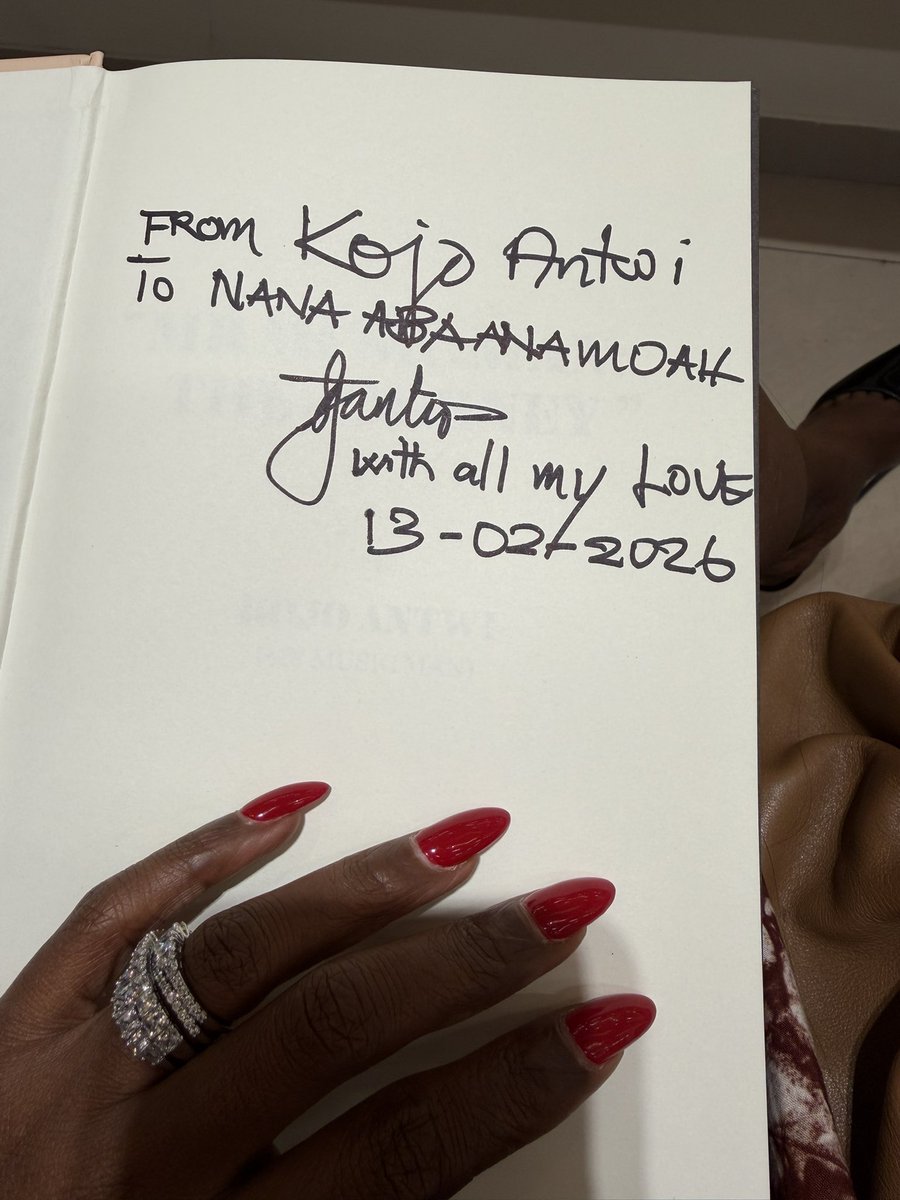 FROM Kojo Antwi
To NANA ABA ANAMOAH
with all my LOVE
13-02-2026
KOJO ANTWI